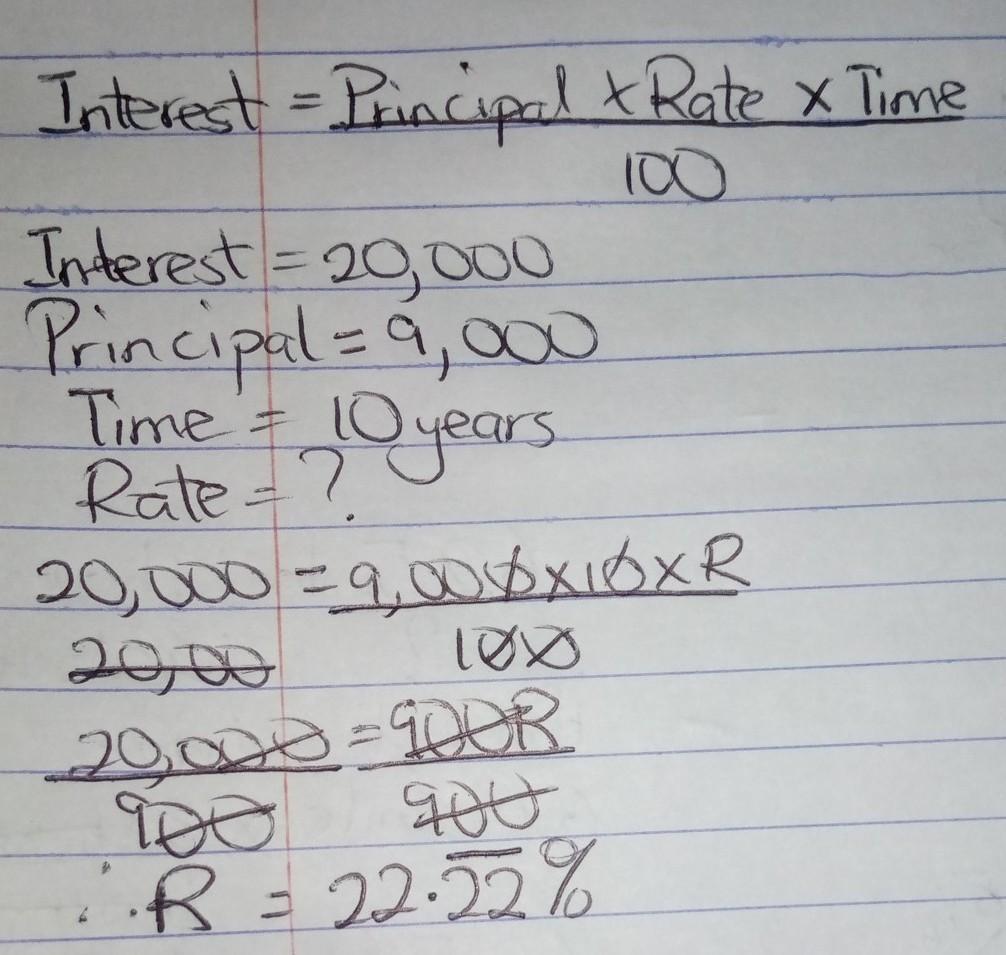 Interest = Principal x Rate x Time
100
Interest = 20,000
Principal = 9,000
Time = 10 years
Rate = ?
20,000 = 9,000x10xR
20,00 100
20,000 = 900R
900 900
∴ R = 22.22%